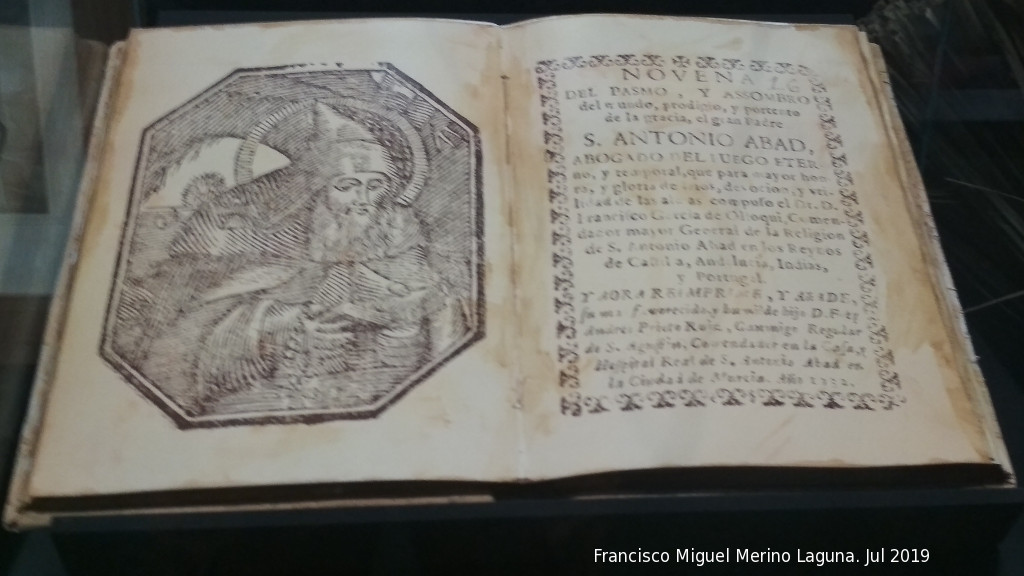 NOVENA 26
DEL PASMO, Y ASSOMBRO
del mundo, prodigio, y portento
de la gracia, el gran Padre
S. ANTONIO ABAD,
ABOGADO DEL FUEGO ETER-
no, y temporal, que para mayor hon
ra, y gloria de devocion, y
lidad de las almas compuso el D.
Francisco Garcia de Olloqui, Comen
dador mayor General de la Religion
de S. Antonio Abad en los Reynos
de Castilla, Andalucia, Indias,
y Portugal.
Y AORA REIMPRIME, Y AÑADE,
su mas favorecido, y humilde hijo D. F.
Andres Prieto Ruiz, Canonigo Reglar
de S. Agustin, Comendador en la Casa, y
Hospital Real de S. Antonio Abad en
la Ciudad de Murcia. Año
Francisco Miguel Merino Laguna. Jul 2019